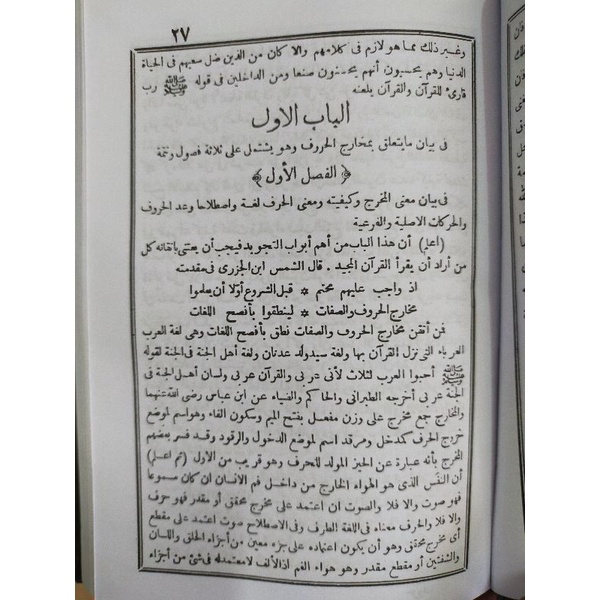 ٢٧
وغير ذلك مما هو لازم فى كلامهم والا كان من الذين ضل سعيهم فى الحياة
الدنيا وهم يحسبون أنهم يحسنون صنعا ومن الداخلين فى قوله ﷺ رب
قارئ للقرآن والقرآن يلعنه
الباب الاول
فى بيان ما يتعلق بمخارج الحروف وهو يشتمل على ثلاثة فصول وتتمة
﴿ الفصل الأول ﴾
فى بيان معنى المخرج وكيفيته ومعنى الحرف لغة واصطلاحا وعدد الحروف
والحركات الاصلية والفرعية
(اعلم) أن هذا الباب من أهم أبواب التجويد فيجب أن يعتنى باتقانه كل
من أراد أن يقرأ القرآن المجيد . قال الشمس ابن الجزرى فى مقدمته
اذ واجب عليهم محتم * قبل الشروع أولا أن يعلموا
مخارج الحروف والصفات * لينطقوا بأفصح اللغات
فمن أتقن مخارج الحروف والصفات نطق بأفصح اللغات وهى لغة العرب
العرباء التى نزل القرآن بها ولغة سيد ولد عدنان ولغة أهل الجنة فى الجنة لقوله
ﷺ أحبوا العرب لثلاث لأنى عربى والقرآن عربى ولسان أهل الجنة فى
الجنة عربى أخرجه الطبرانى والحاكم والضياء عن ابن عباس رضى الله عنهما
والمخارج جمع مخرج على وزن مفعل بفتح الميم وسكون الفاء وهو اسم لموضع
خروج الحرف كمدخل ومرقد اسم لموضع الدخول والرقود وقد فسر بعضهم
المخرج بأنه عبارة عن الحيز المولد للحرف وهو قريب من الاول (ثم اعلم)
أن النفس الذى هو الهواء الخارج من داخل فم الانسان ان كان مسموعا
فهو صوت والا فلا والصوت ان اعتمد على مخرج محقق أو مقدر فهو حرف
والا فلا والحرف معناه فى اللغة الطرف وفى الاصطلاح صوت اعتمد على مقطع
أى مخرج محقق وهو أن يكون اعتماده على جزء معين من أجزاء الحلق واللسان
والشفتين أو مقطع مقدر وهو هواء الفم اذ الألف لا معتمد له فى شئ من أجزاء